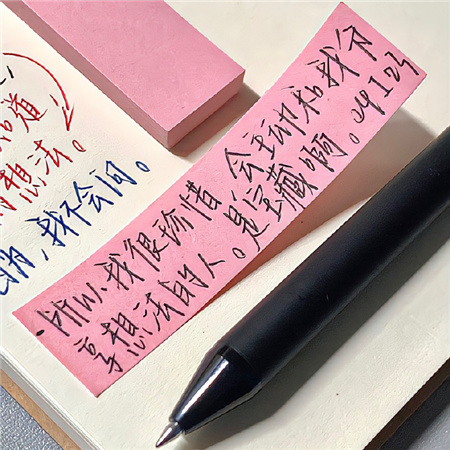 道
想法。
，我不会问。
·所以我很珍惜，会主动和我分
享想法的人。是宝藏啊。